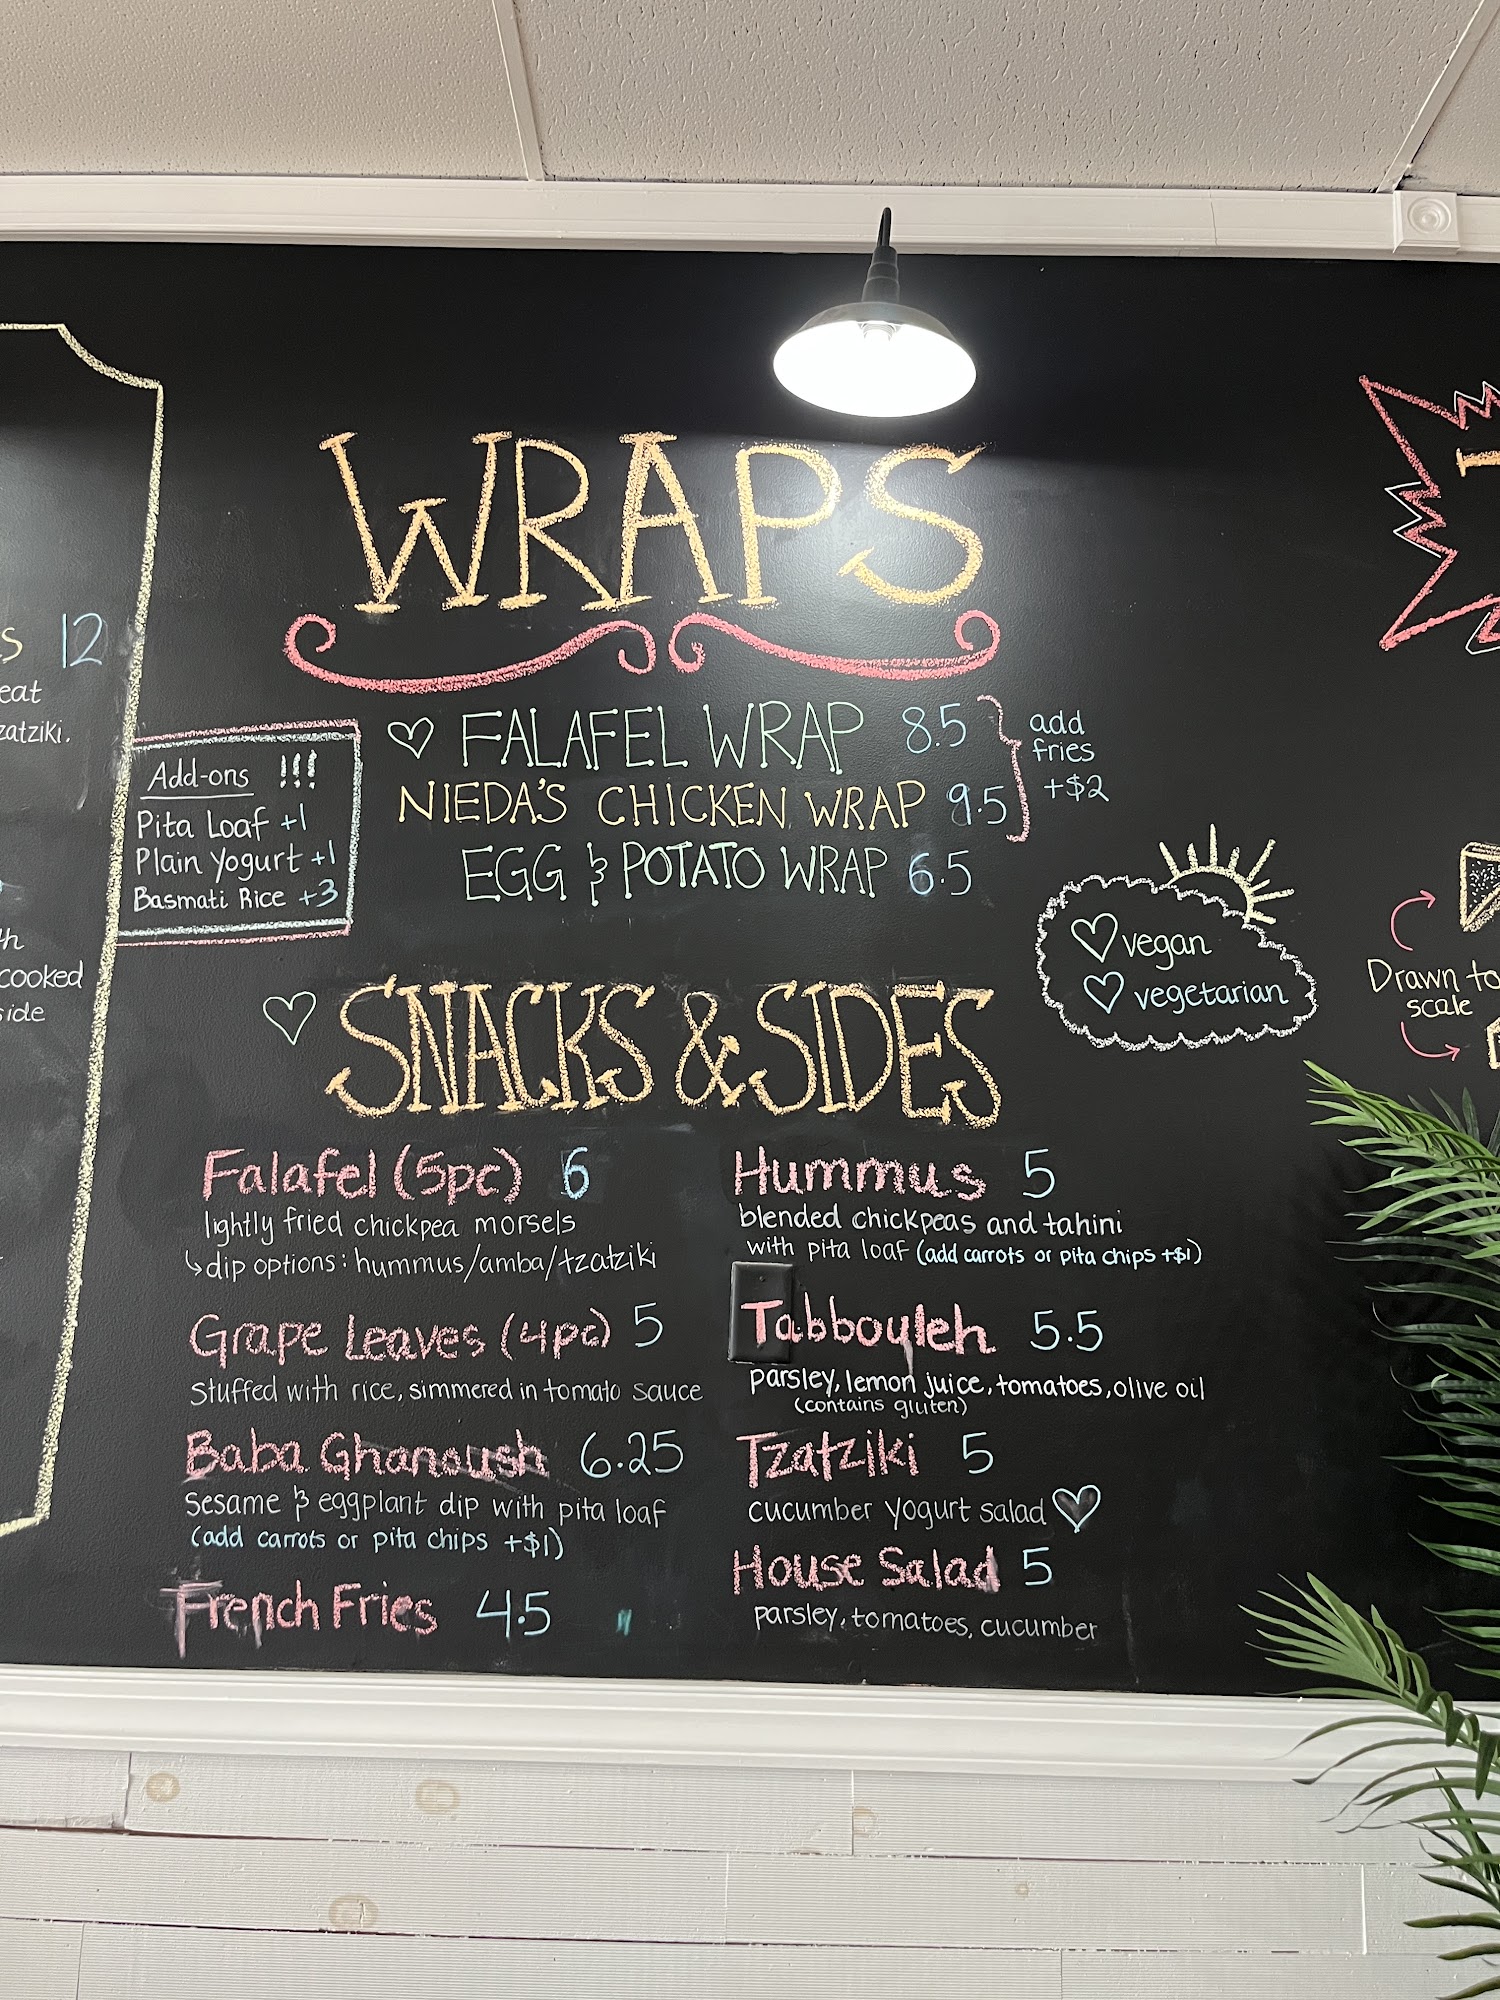 s 12
eat
zatziki.
th
cooked
side
WRAPS
♡ FALAFEL WRAP 8.5
NIEDA'S CHICKEN WRAP 9.5
EGG & POTATO WRAP 6.5
add
fries
+$2
Add-ons !!!
Pita Loaf +1
Plain Yogurt +1
Basmati Rice +3
♡ vegan
♡ vegetarian
Drawn to
scale
♡ SNACKS & SIDES
Falafel (5pc) 6
lightly fried chickpea morsels
↳ dip options: hummus/amba/tzatziki
Grape Leaves (4pc) 5
stuffed with rice, simmered in tomato sauce
Baba Ghanoush 6.25
sesame & eggplant dip with pita loaf
(add carrots or pita chips +$1)
French Fries 4.5
Hummus 5
blended chickpeas and tahini
with pita loaf (add carrots or pita chips +$1)
Tabbouleh 5.5
parsley, lemon juice, tomatoes, olive oil
(contains gluten)
Tzatziki 5
cucumber yogurt salad ♡
House Salad 5
parsley, tomatoes, cucumber